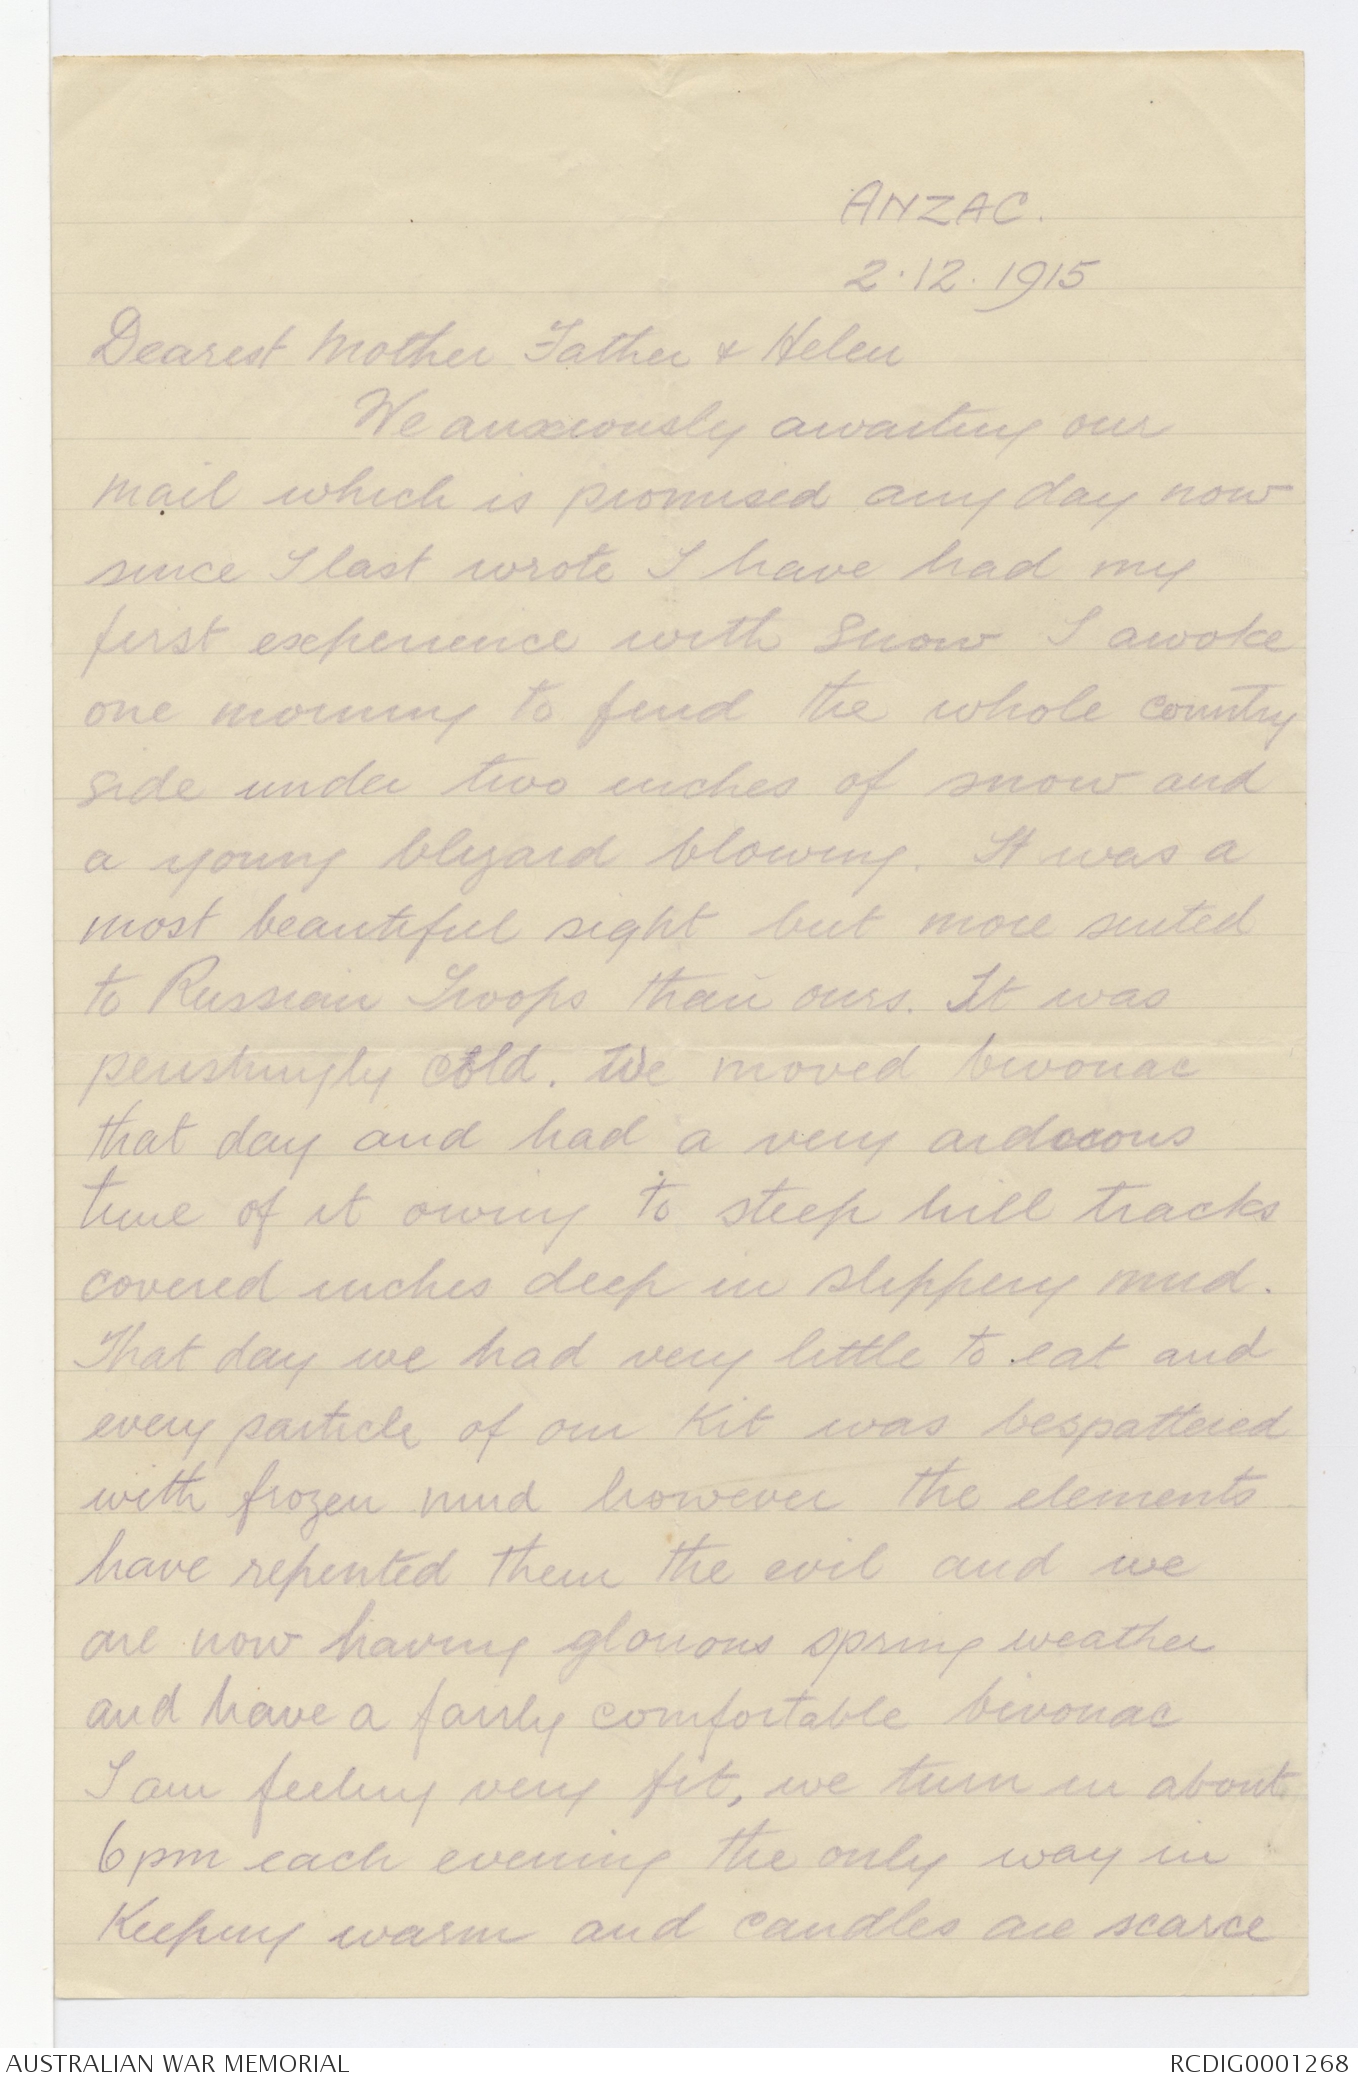 ANZAC.
2.12.1915
Dearest Mother Father & Helen
We anxiously awaiting our
mail which is promised any day now
since I last wrote I have had my
first experience with snow I awoke
one morning to find the whole country
side under two inches of snow and
a young blyzard blowing. It was a
most beautiful sight but more suited
to Russian Troops than ours. It was
perishingly cold. We moved bivouac
that day and had a very
time of it owing to steep hill tracks
covered inches deep in slippery mud.
That day we had very little to eat and
every particle of our Kit was bespattered
with frozen mud however the elements
have repented them the evil and we
are now having glorious spring weather
and have a fairly comfortable bivouac
I am feeling very fit, we turn in about
6 pm each evening the only way in
Keeping warm and candles are scarce
AUSTRALIAN WAR MEMORIAL
RCDIG0001268